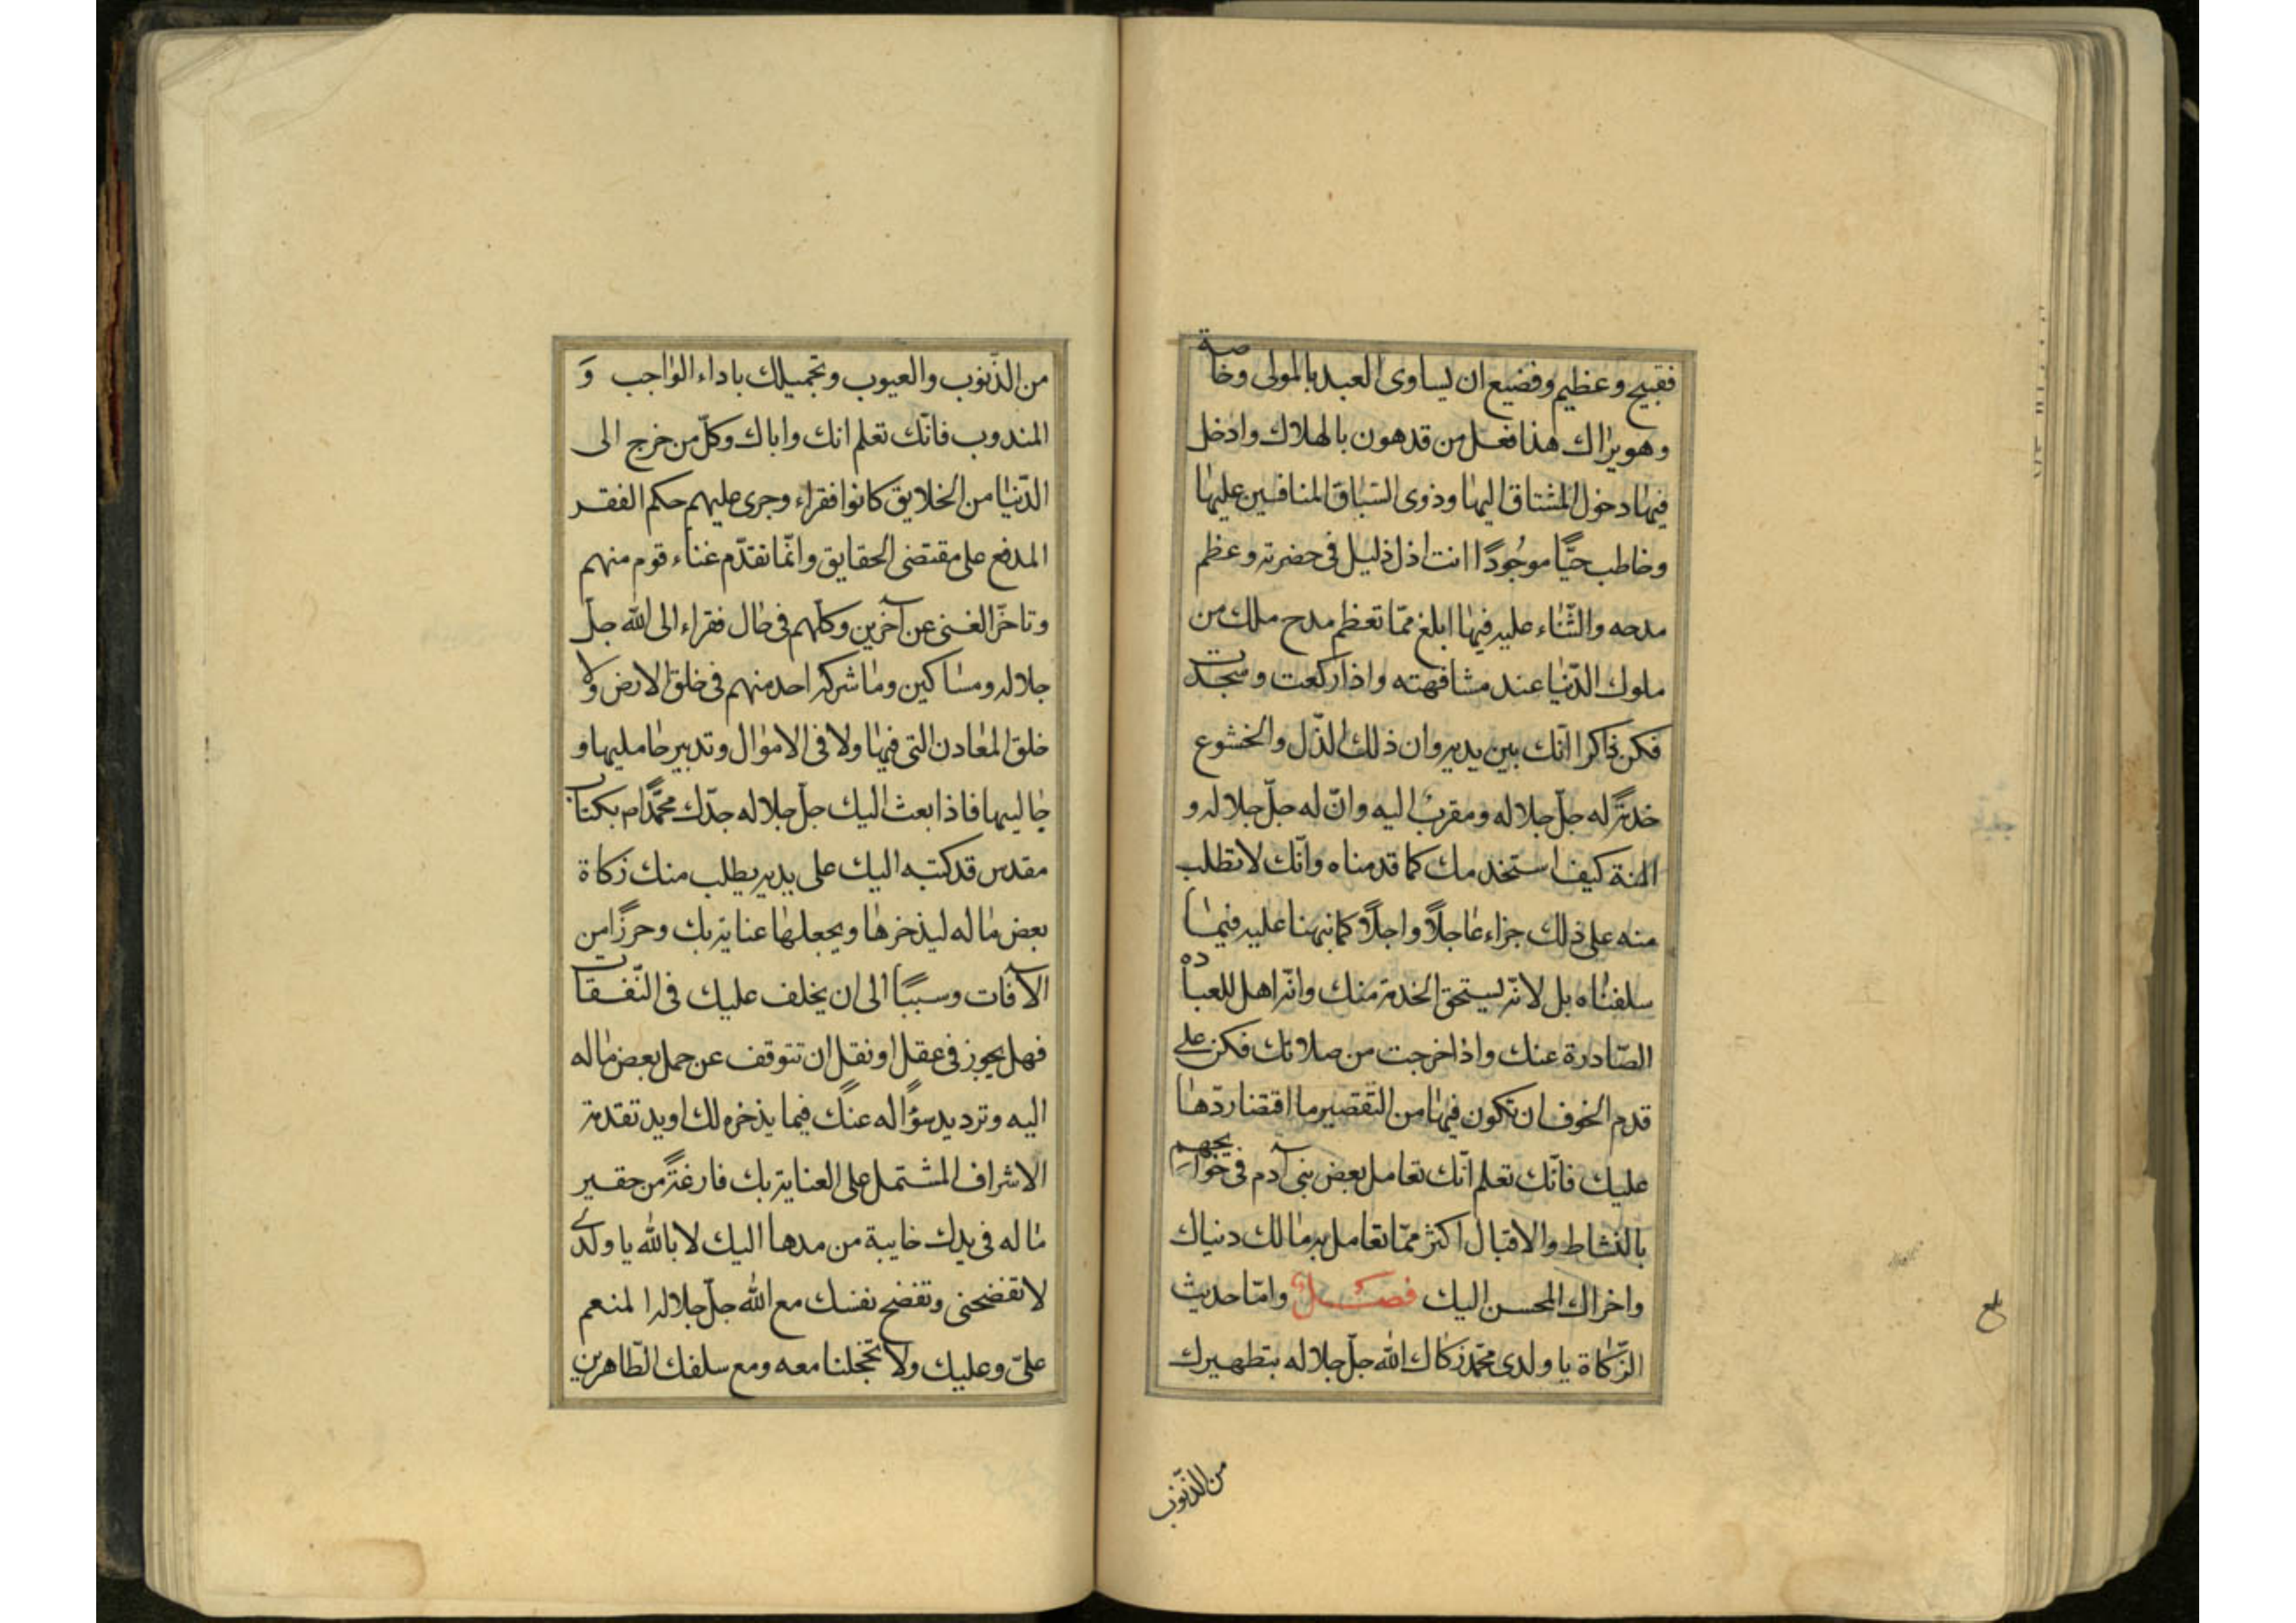 فقبيح وعظيم وفضيع ان يساوى العبد بالمولى وخاصة
وهو يراك هذا فعل من قد هون بالهلاك وادخل
فيها دخول المشتاق اليها وذوى السباق المنافسين عليها
وخاطب حيًّا موجُودًا انت اذل ذليل فى حضرته وعظم
مدحه والثّناء عليه فيها ابلغ ممّا تعظم مدح ملك من
ملوك الدّنيا عند مشافهته واذا ركعت وسجدت
فكن ذاكرا انّك بين يديه وان ذلك الذّل والخشوع
خدمةً له جلّ جلاله ومقرب اليه وانّ له جلّ جلاله و
المنة كيف استخدمك كما قدمناه وانّك لا تطلب
منه على ذلك جزاء عاجلًا واجلًا كما نبهنا عليه فيما
سلفناه بل لانّه يستحق الخدمة منك وانّه اهل للعباده
الصّادرة عنك واذا خرجت من صلاتك فكن على
قدم الخوف ان تكون فيها من التّقصير ما اقتضا ردّها
عليك فانّك تعلم انّك تعامل بعض بنى آدم فى حوايجهم
بالنّشاط والاقبال اكثر ممّا تعامل به مالك دنياك
واخراك المحسن اليك فصل وامّا حديث
الزّكاة يا ولدى محمّد زكاك الله جلّ جلاله بتطهيرك
من الذّنوب
بلغ
من الذّنوب والعيوب وتجميلك باداء الواجب وَ
المندوب فانّك تعلم انك واباك وكلّ من خرج الى
الدّنيا من الخلايق كانوا فقراء وجرى عليهم حكم الفقر
المدفع على مقتضى الحقايق وانّما تقدّم غناء قوم منهم
وتاخّر الغنى عن آخرين وكلّهم فى حال فقراء الى الله جلّ
جلاله ومساكين وما شركه احد منهم فى خلق الارض ولا
خلق المعادن التى فيها ولا فى الاموال وتدبير حامليها و
جاليبها فاذا بعث اليك جلّ جلاله جدّك محمّدًا ص بكتاب
مقدس قد كتبه اليك على يديه يطلب منك زكاة
بعض ماله ليذخرها ويجعلها عناية بك وحرزًا من
الآفات وسببًا الى ان يخلف عليك فى النّفقات
فهل يجوز فى عقل او نقل ان تتوقف عن حمل بعض ماله
اليه وترد يد سؤاله عنك فيما يذخره لك او يد تقدمة
الاشراف المشتمل على العناية بك فارغةً من حقير
ماله فى يدك خايبة من مدها اليك لا بالله يا ولدى
لا تفضحنى وتفضح نفسك مع الله جلّ جلاله المنعم
علىّ وعليك ولا تخجلنا معه ومع سلفك الطّاهرين